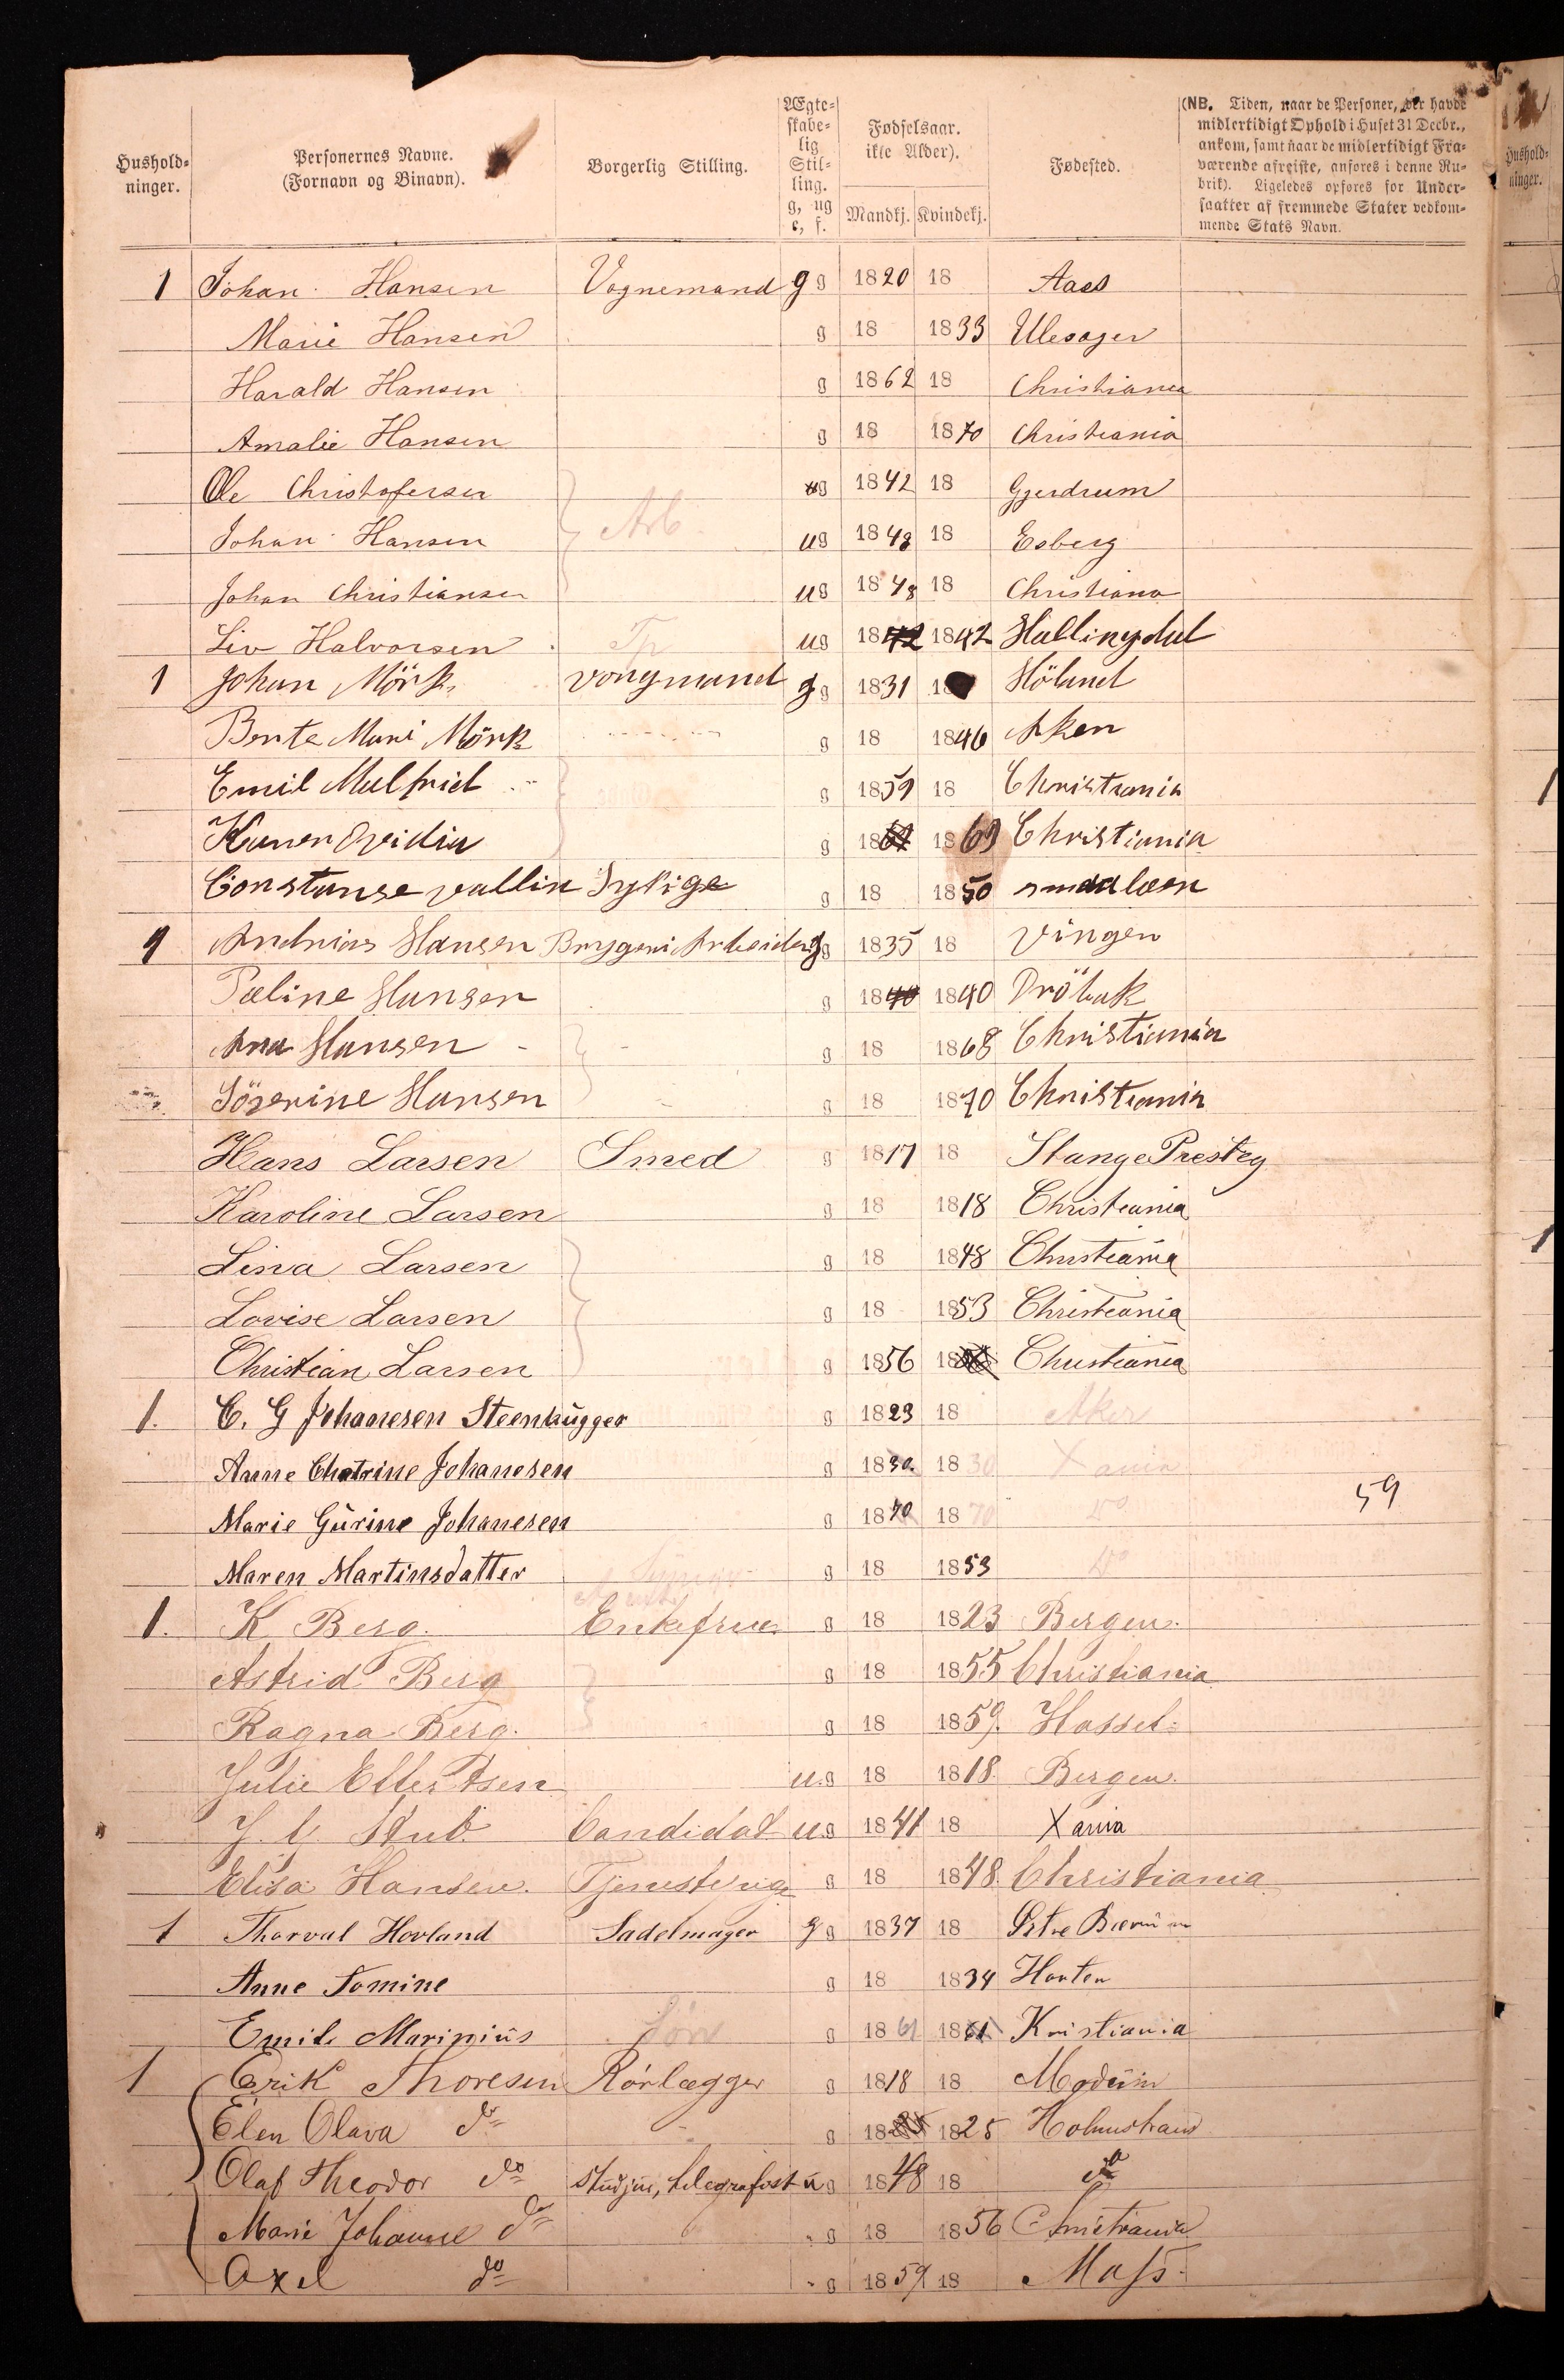 Hushold-ninger. Personernes Navne. (Fornavn og Binavn). Borgerlig Stilling. Ægte-skabe-lig Stil-ling. g, ug e, f. Fødselsaar. ikke Alder). Mandkj. Kvindekj. Fødested.
(NB. Tiden, naar de Personer, der havde
midlertidigt Ophold i Huset 31 Decbr.,
ankom, samt naar de midlertidigt Fra-
værende afreiste, anføres i denne Ru-
brik). Ligeledes opføres for Under-
saatter af fremmede Stater vedkom-
mende Stats Navn.
Hushold-ninger.
1 Johan Hansen Vognemand g g 1820 18 Aas
Marie Hansen g 18 1833 Ulesager
Harald Hansen g 1862 18 Christiania
Amalie Hansen g 18 1870 Christiania
Ole Christofersen ug 1842 18 Gjerdrum
Arb
Johan Hansen ug 1848 18 Esberg
Johan Christiansen ug 1848 18 Christiana
Liv Halvorsen Tp ug 1842 1842 Hallingdal
1 Johan Mörk vongmand g g 1831 18 Höland
Bente Mari Mörk g 18 1846 Aker
Emil Mulfrid g 1859 18 Christiania
Karen Ovidia g 18 1869 Christiania
Constanse vallin Sykige g 18 1850 smaalæn
1 Andrias Hansen Bryggeri Arbeider g g 1835 18 Vinger
Pæline Hansen g 1840 1840 Dröbak
Ana Hansen g 18 1868 Christiania
Söverine Hansen g 18 1870 Christiania
Hans Larsen Smed g 1817 18 Stange Presteg
Karoline Larsen g 18 1818 Christiania
Lina Larsen g 18 1848 Christiania
Lovise Larsen g 18 1853 Christiania
Christian Larsen g 1856 18 Christiania
1. C. G Johanesen Steenhugger g 1823 18 Aker
Anne Chatrine Johanesen g 1830 1830 Xania
Marie Gurine Johanesen g 1870 1870 Do 59
Maren Martinsdatter g 18 1853 Do
1. K Berg. Enkefrue g 18 1823 Bergen.
Astrid Berg g 18 1855 Christiania
Ragna Berg. g 18 1859. Hassel
Julie Ellertsen u.g 18 1818. Bergen.
Stub. Candidat u.g 1841 18 Xania
Elisa Hansen. Tjenestepige g 18 1848. Christiania
1 Thorval Hovland Sadelmager g g 1837 18 Østre Bærum
Anne Tomine g 18 1834 Horten
Emile Marinius Sön g 1861 1861 Kristiania
1 Erik Thoresen Rörlægger g 1818 18 Modum
Elen Olava do g 18 1825 Holmestrand
Olaf Theodor do studjur, telegrafist u g 1848 18 do
Marie Johanne do g 18 1856 Christiania
Axel do g 1859 18 Moss